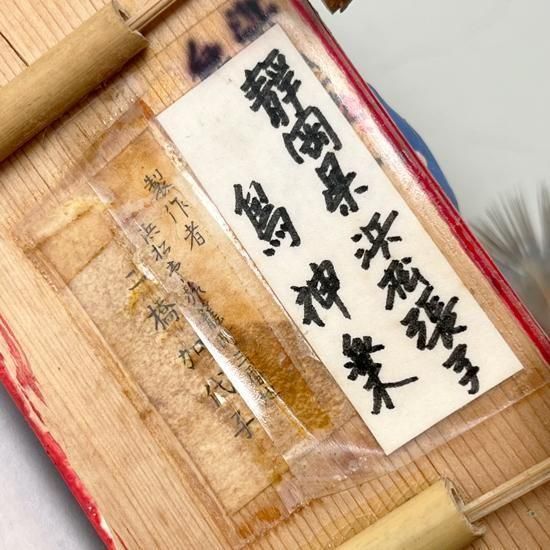 静岡県浜松張子
神楽
製作者
浜松市
二橋加代子